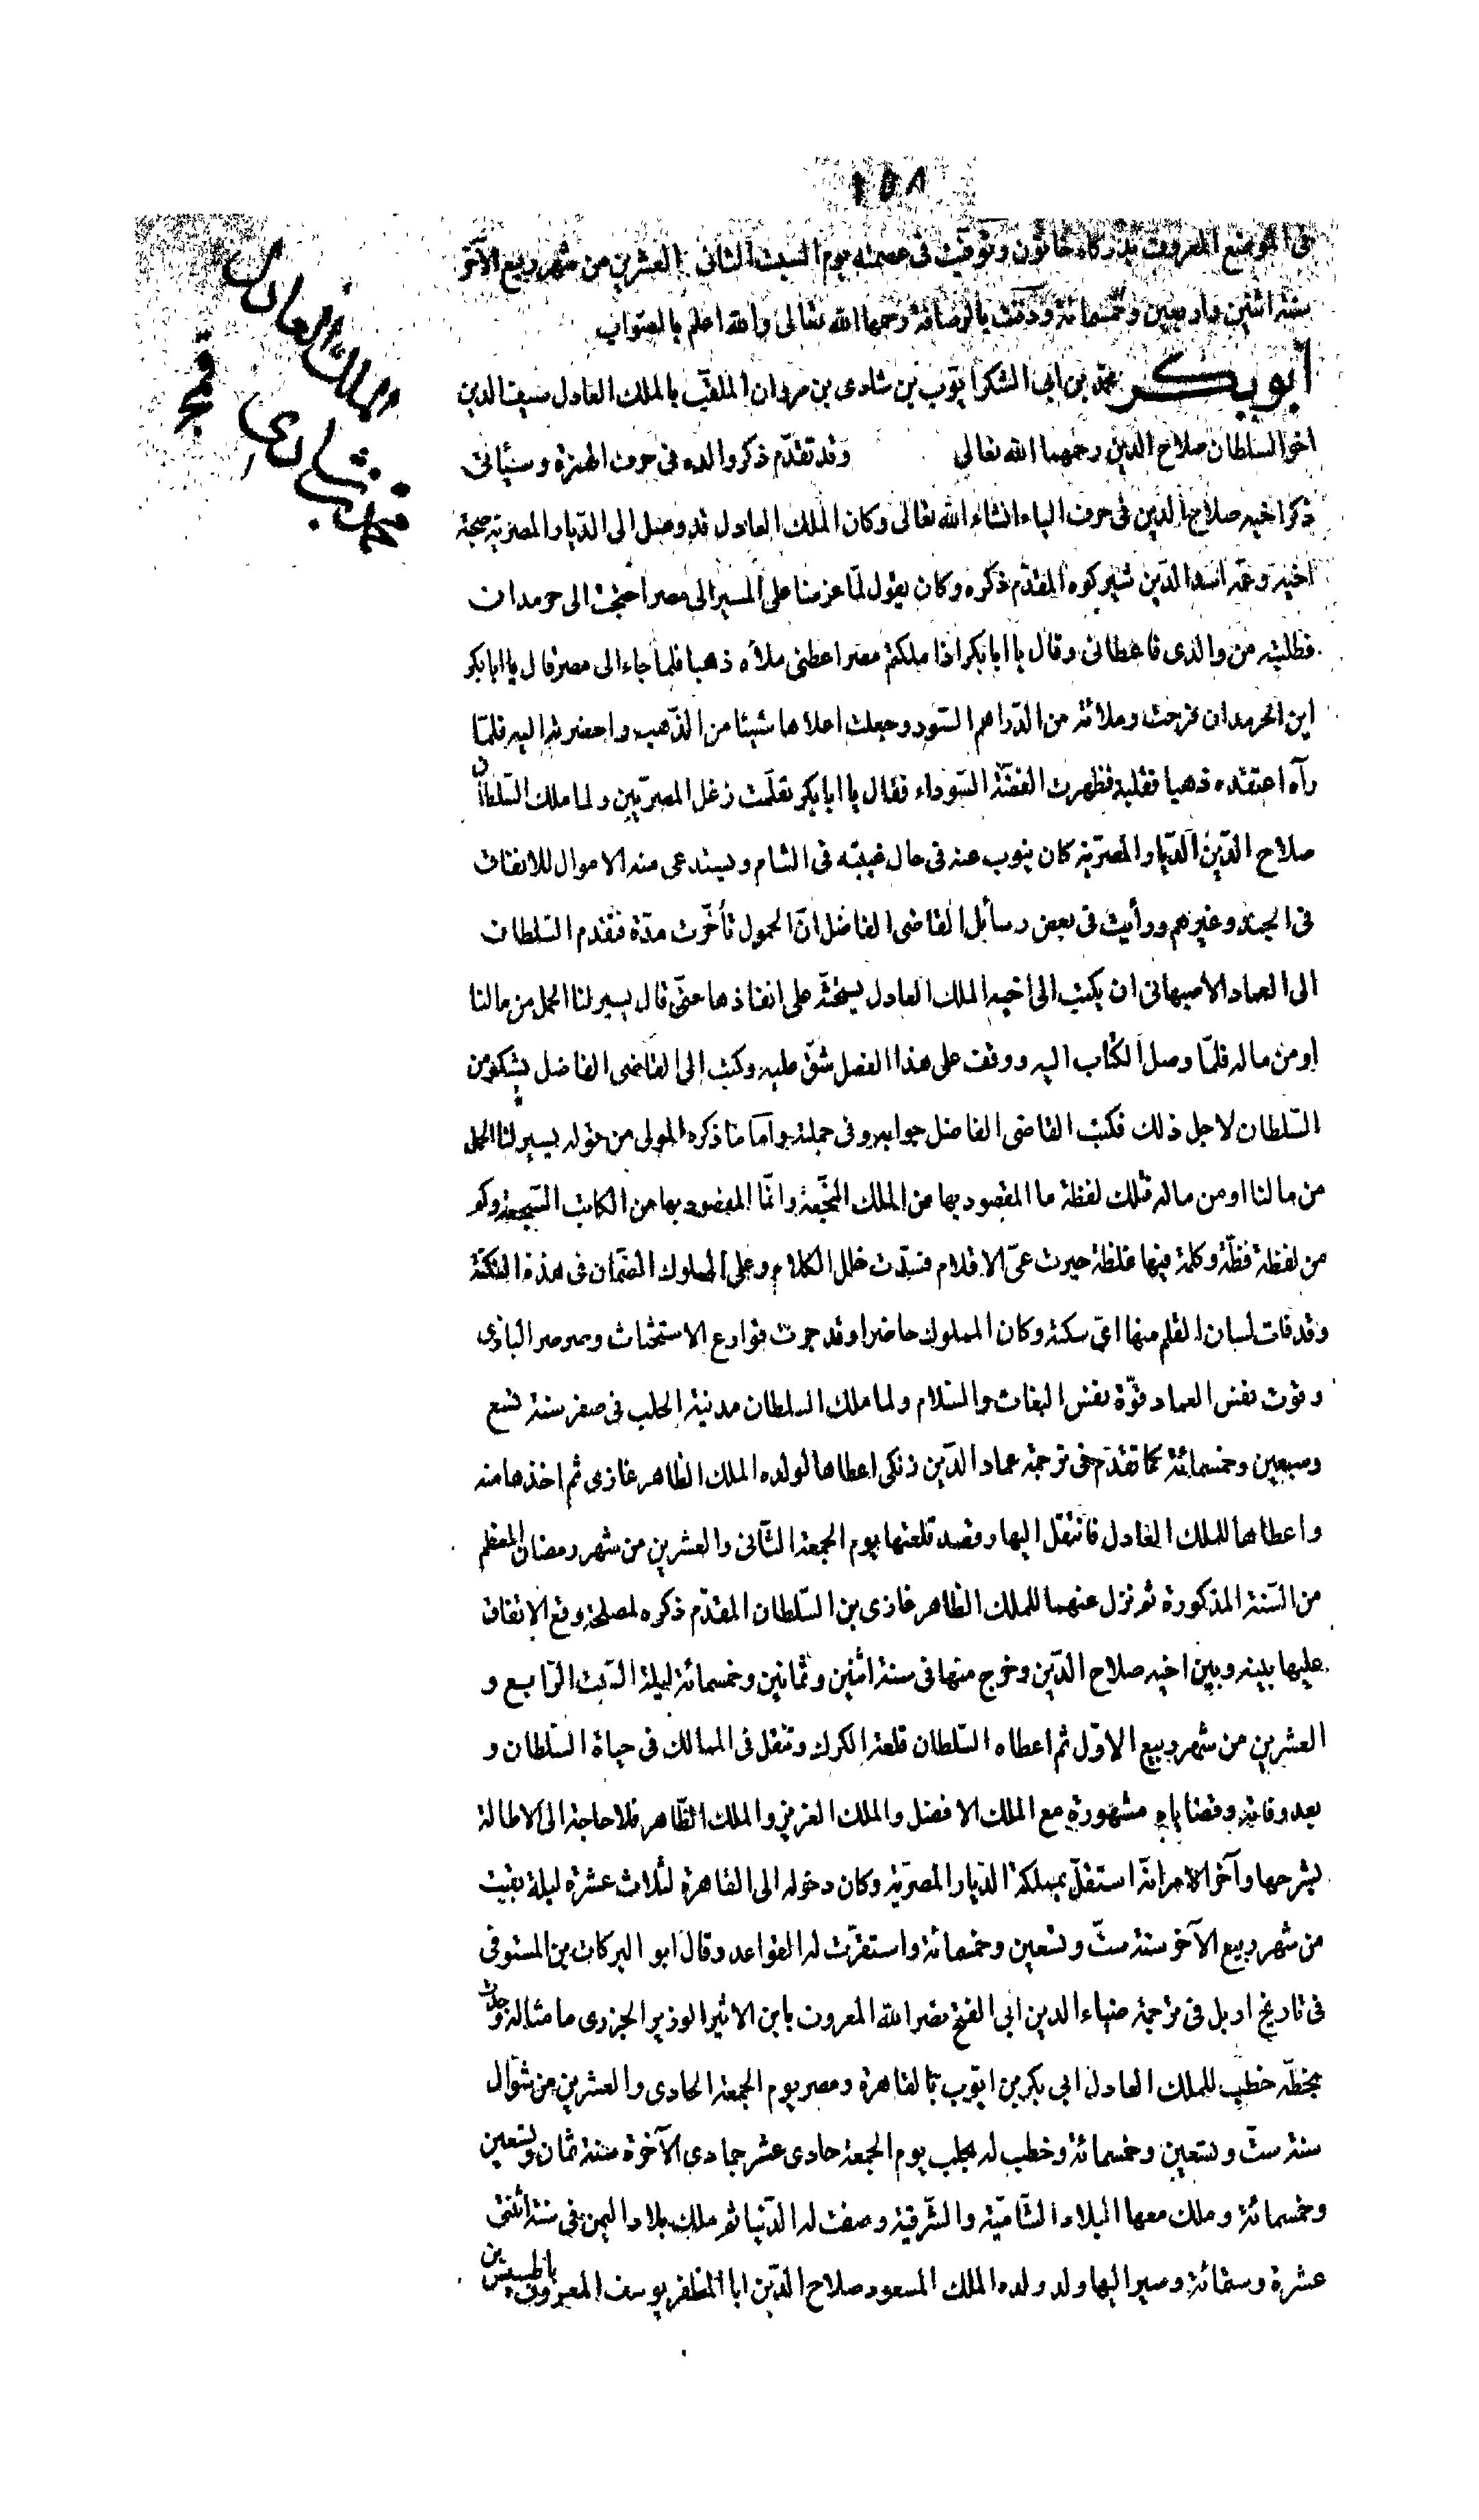 ١٥٨
فى الموضع المعروف بدركاه خاتون وتوفيت فى عصمته يوم السبت الثانى العشرين من شهر ربيع الآخر
سنة اثنين واربعين وخمسمائة ودفنت بالرصافة رحمها الله تعالى والله اعلم بالصواب
الملك العادل
محمد بن شادى
أبو بكر محمد بن ابى الشكر ايّوب بن شادى بن مروان الملقّب بالملك العادل سيف الدين
اخو السلطان صلاح الدين رحمهما الله تعالى وقد تقدّم ذكر والده فى حرف الهمزة وسيأتى
ذكر اخيه صلاح الدين فى حرف الياء انشاء الله تعالى وكان الملك العادل قد وصل الى الدّيار المصرية صحبة
اخيه وعمّه اسد الدّين شيركوه المقدّم ذكره وكان يقول لمّا عزمنا على المسير الى مصر احتجت الى حرمدان
فطلبته من والدى فاعطانى وقال يا ابا بكر اذا ملكتم مصر اعطنى ملأه ذهبا فلما جاء الى مصر قال يا ابا بكر
اين الحرمدان فرحت وملأته من الدّراهم السّود وجعلت اعلاها شيئا من الذّهب واحضرته اليه فلمّا
رآه اعتقده ذهبا فقلبه فظهرت الفضّة السّوداء فقال يا ابا بكر تعلّمت زغل المصريّين ولما ملك السّلطان
صلاح الدّين الدّيار المصريّة كان ينوب عنه فى حال غيبته فى الشام ويستدعى منه الاموال للانفاق
فى الجند وغيرهم ورأيت فى بعض رسائل القاضى الفاضل انّ الحمول تأخّرت مدّة فتقدم السّلطان
الى العماد الاصبهانى ان يكتب الى اخيه الملك العادل يستحثّه على انفاذها حتّى قال يسير لنا الحمل من مالنا
او من ماله فلمّا وصل الكتاب اليه ووقف على هذا الفصل شقّ عليه وكتب الى القاضى الفاضل يشكو من
السّلطان لاجل ذلك فكتب القاضى الفاضل جوابه وفى جملته وامّا ما ذكره المولى من قوله يسير لنا الحمل
من مالنا او من ماله فتلك لفظة ما المقصود بها من الملك النجّعة وانّما المقصود بها من الكاتب السّجعة وكم
من لفظة فظّة وكلمة فيها غلظة حيرت عىّ الاقلام فسدّت خلل الكلام وعلى المملوك الضّمان فى هذه النكتة
وقد فات لسان القلم منها اىّ سكتة وكان المملوك حاضرا وقد جرت قوارع الاستحثاث وصرصر البازى
وقوت نفس العماد قوّة نفس البغاث والسّلام ولما ملك السلطان مدينة الحلب فى صفر سنة تسع
وسبعين وخمسمائة كما تقدّم فى ترجمة عماد الدّين زنكى اعطاها لولده الملك الظاهر غازى ثم اخذها منه
واعطاها للملك العادل فانتقل اليها وقصد قلعتها يوم الجمعة الثّانى والعشرين من شهر رمضان المعظم
من السّنة المذكورة ثم نزل عنهما للملك الظاهر غازى بن السّلطان المقدّم ذكره لمصلحة وقع الاتفاق
عليها بينه وبين اخيه صلاح الدّين وخرج منها فى سنة اثنين وثمانين وخمسمائة ليلة السّبت الرّابع و
العشرين من شهر ربيع الاوّل ثم اعطاه السّلطان قلعة الكرك وتنقل فى الممالك فى حياة السّلطان و
بعد وفاته وقضاياه مشهورة مع الملك الافضل والملك العزيز والملك الظّاهر فلا حاجة الى الاطالة
بشرحها وآخر الامر انّه استقلّ بمملكة الدّيار المصريّة وكان دخوله الى القاهرة لثلاث عشرة ليلة بقيت
من شهر ربيع الآخر سنة ستّ وتسعين وخمسمائة واستقرّت له القواعد وقال ابو البركات بن المستوفى
فى تاريخ اربل فى ترجمة ضياء الدين ابى الفتح نصر الله المعروف بابن الاثير الوزير الجزرى ما مثاله وجدت
بخطّه خطب للملك العادل ابى بكر بن ايّوب بالقاهرة ومصر يوم الجمعة الحادى والعشرين من شوّال
سنة ستّ وتسعين وخمسمائة وخطب له بحلب يوم الجمعة حادى عشر جمادى الآخرة سنة ثمان وتسعين
وخمسمائة وملك معها البلاد الشّاميّة والشّرقية وصفت له الدّنيا ثم ملك بلاد اليمن فى سنة اثنتى
عشرة وستمائة وسير اليها ولد ولده الملك المسعود صلاح الدّين ابا المظفر يوسف المعروف باطسيس بن